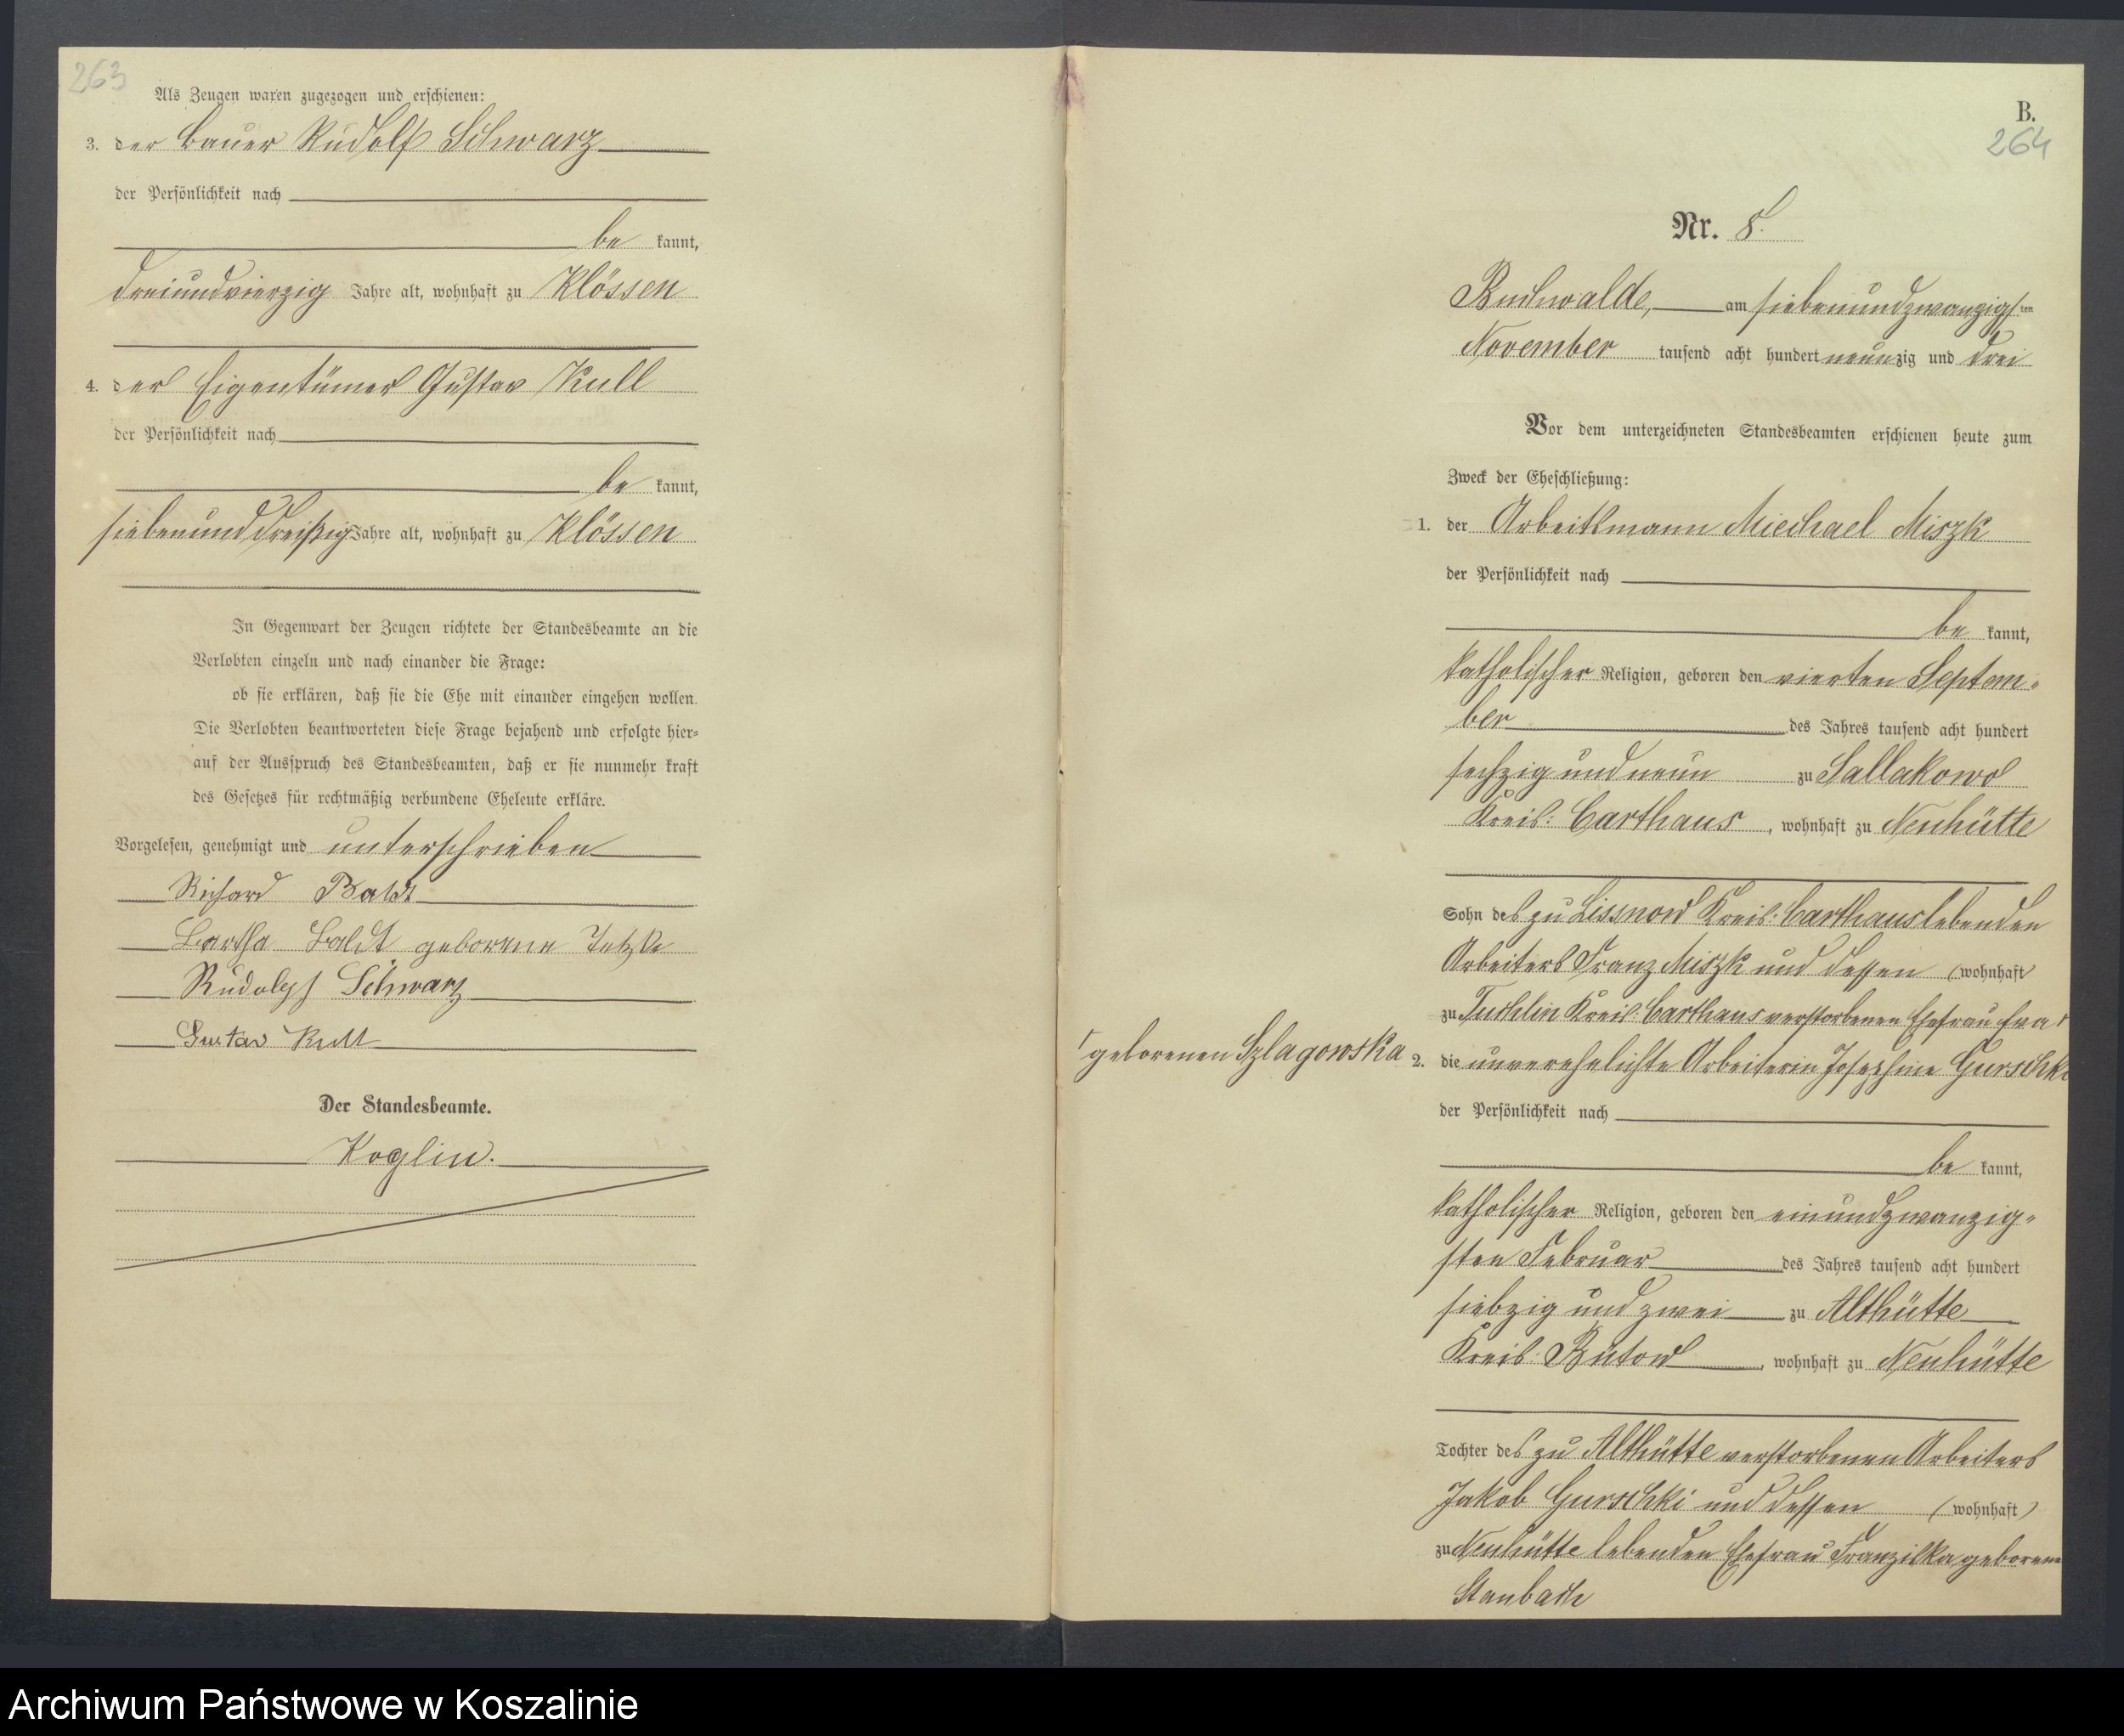 263
Als Zeugen waren zugezogen und erschienen:
3. der Bauer Rudolf Schwarz
der Persönlichkeit nach
be kannt,
dreiundvierzig Jahre alt, wohnhaft zu Klössen
4. der Eigentümer Gustav Kull
der Persönlichkeit nach
be kannt,
siebenunddreißig Jahre alt, wohnhaft zu Klössen
In Gegenwart der Zeugen richtete der Standesbeamte an die
Verlobten einzeln und nach einander die Frage:
ob sie erklären, daß sie die Ehe mit einander eingehen wollen.
Die Verlobten beantworteten diese Frage bejahend und erfolgte hier-
auf der Ausspruch des Standesbeamten, daß er sie nunmehr kraft
des Gesetzes für rechtmäßig verbundene Eheleute erkläre.
Vorgelesen, genehmigt und unterschrieben
Richard Baldt
Bertha Baldt geborene
Rudolph Schwarz
Gustav Kull
Der Standesbeamte.
Koglin.
B.
264
Nr. 8.
Buchwalde, am siebenundzwanzigsten
November tausend acht hundert neunzig und drei
Vor dem unterzeichneten Standesbeamten erschienen heute zum
Zweck der Eheschließung:
1. der Arbeitsmann Miechael Miszk
der Persönlichkeit nach
be kannt,
katholischer Religion, geboren den vierten Septem-
ber des Jahres tausend acht hundert
sechzig und neun zu Sallakowo
Kreis: Carthaus, wohnhaft zu Neuhütte
Sohn des zu Lissnow Kreis: Carthaus lebenden
Arbeiters Franz Miszk und dessen (wohnhaft)
zu Tuchlin Kreis: Carthaus verstorbenen Ehefrau Eva ⌈
⌈ geborenen Szlagowska
2. die unverehelichte Arbeiterin Josephine Gurschki
der Persönlichkeit nach
be kannt,
katholischer Religion, geboren den einundzwanzig-
sten Februar des Jahres tausend acht hundert
siebzig und zwei zu Althütte
Kreis Bütow, wohnhaft zu Neuhütte
Tochter des zu Althütte verstorbenen Arbeiters
Jakob Gurschki und dessen (wohnhaft)
zu Neuhütte lebenden Ehefrau Franziska geborene
Stanbach
Archiwum Państwowe w Koszalinie